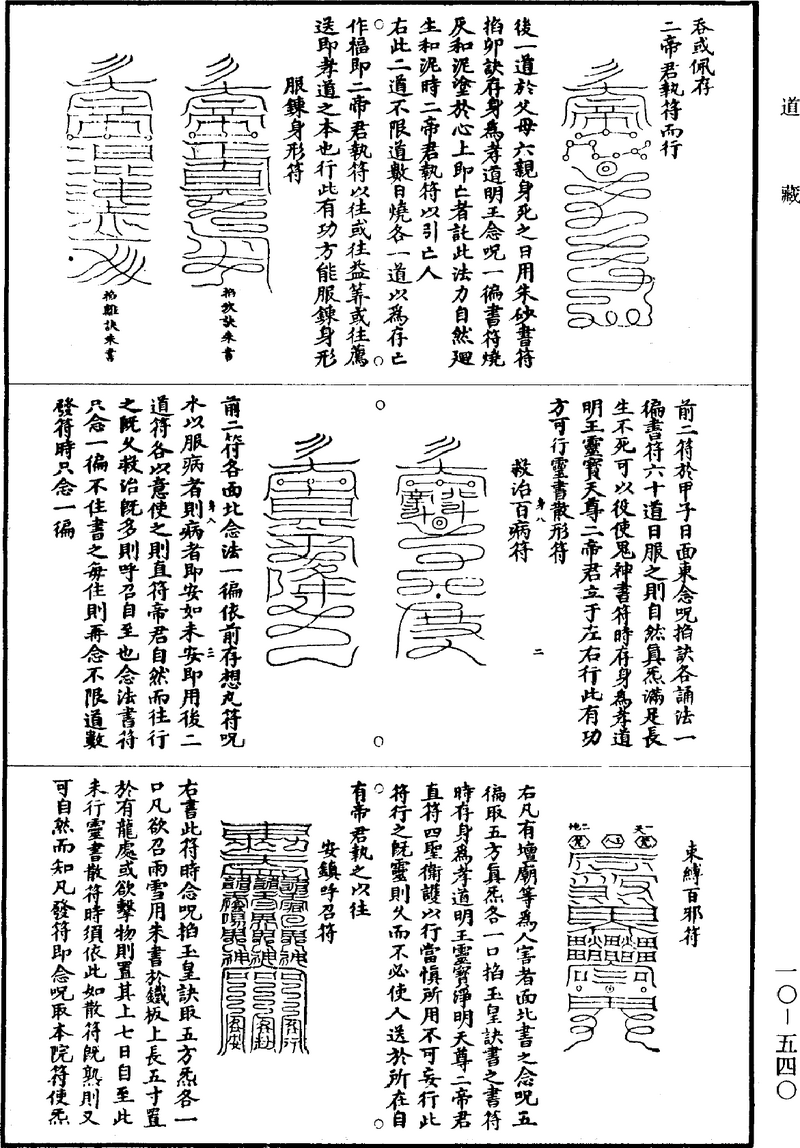 道藏
吞或佩存
二帝君執符而行
後一道於父母六親身死之日用朱砂書符
掐卯訣存身為孝道明王念呪一徧書符燒
灰和泥塗於心上即亡者託此法力自然廻
生和泥時二帝君執符以引亡人
右此二道不限道數日燒各一道以為存亡
作福即二帝君執符以往或往益筭或往薦
送即孝道之本也行此有功方能服鍊身形
服鍊身形符
掐坎訣朱書
掐離訣朱書
前二符於甲子日面東念呪掐訣各誦法一
徧書符六十道日服之則自然真炁滿足長
生不死可以役使鬼神書符時存身為孝道
明王靈寶天尊二帝君立于左右行此有功
方可行靈書散形符
身八
二
救治百病符
前二符各面北念法一徧依前存想丸符呪
水以服病者則病者即安如未安即用後二
身八
三
道符各以意使之則直符帝君自然而往行
之既久救治既多則呼召自至也念法書符
只念一徧不住書之每住則再念不限道數
發符時只念一徧
束縛百邪符
右凡有壇廟等為人害者面北書之念呪五
徧取五方真炁各一口掐玉皇訣書之書符
時存身為孝道明王靈寶淨明天尊二帝君
直符四聖衛護以行當慎所用不可妄行此
符行之既靈則久而不必使人送於所在自
有帝君執之以往
安鎮呼召符
右書此符時念呪掐玉皇訣取五方炁各一
口凡欲召雨雪用朱書於鐵板上長五寸置
於有龍處或欲擊物則置其上七日自至此
未行靈書散符時須依此如散符既熟則又
可自然而知凡發符即念呪取本院符使炁
一〇－五四〇